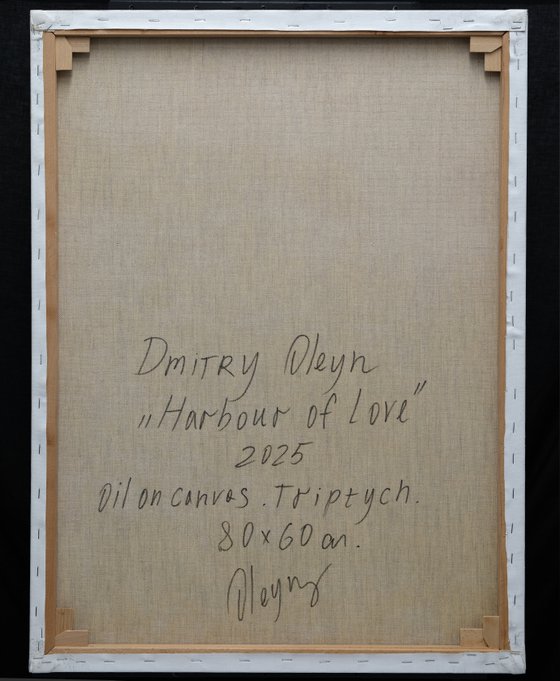 Dmitry Oleyn
„Harbour of Love"
2025
Oil on canvas. Triptych.
80x60 cm.
Oleyn